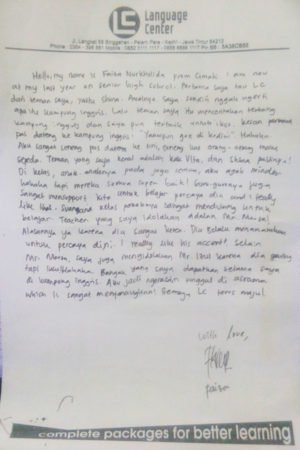 LC
Language
Center
Jl. Langkat 88 Singgahan - Palem Pare - Kediri - Jawa Timur 64213
Phone : 0354 396 881 Mobile :
Hello, my name is Faiza Nurkholida from Cimahi. I am now
at my last year on Senior high School. Pertama saya tau LC
dari teman saya, yaitu Shina. Awalnya saya sendiri nggak ngerti
apa itu kampung inggris. Lalu teman saya itu menceritakan tentang
kampung inggris dan saya pun tertarik untuk ikut. Kesan pertama
pas dateng ke kampung inggris: "Yaampun gue di kediri". Hahaha.
Aku sangat seneng pas dateng ke sini, soalnya liat orang-orang make
sepeda. Teman yang saya kenal adalah kak Vita, dan Shina pastinya!
Di kelas, anak-anaknya pada jago semua, aku agak minder
hahaha tapi mereka semua keren kok! Guru-gurunya juga
sangat mendsport kita untuk belajar percaya diri and I really
like that. Suasana kelas pokoknya sangat mendukung untuk
belajar. Teacher yang saya idolakan adalah Mr. Mursal.
Alasannya ya karena dia sangat keren. Dia selalu menanamkan
untuk percaya diri. I really like his accent! Selain
Mr. Mursal saya juga mengidolakan Mr. Ibul karena dia
tapi lucu! Hahaha. Banyak yang saya dapatkan selama saya
di kampung inggris. Aku jadi ngerasain tinggal di asrama
which is sangat menyenangkan! Semoga LC terus maju!
With Love,
Faiza
complete packages for better learning